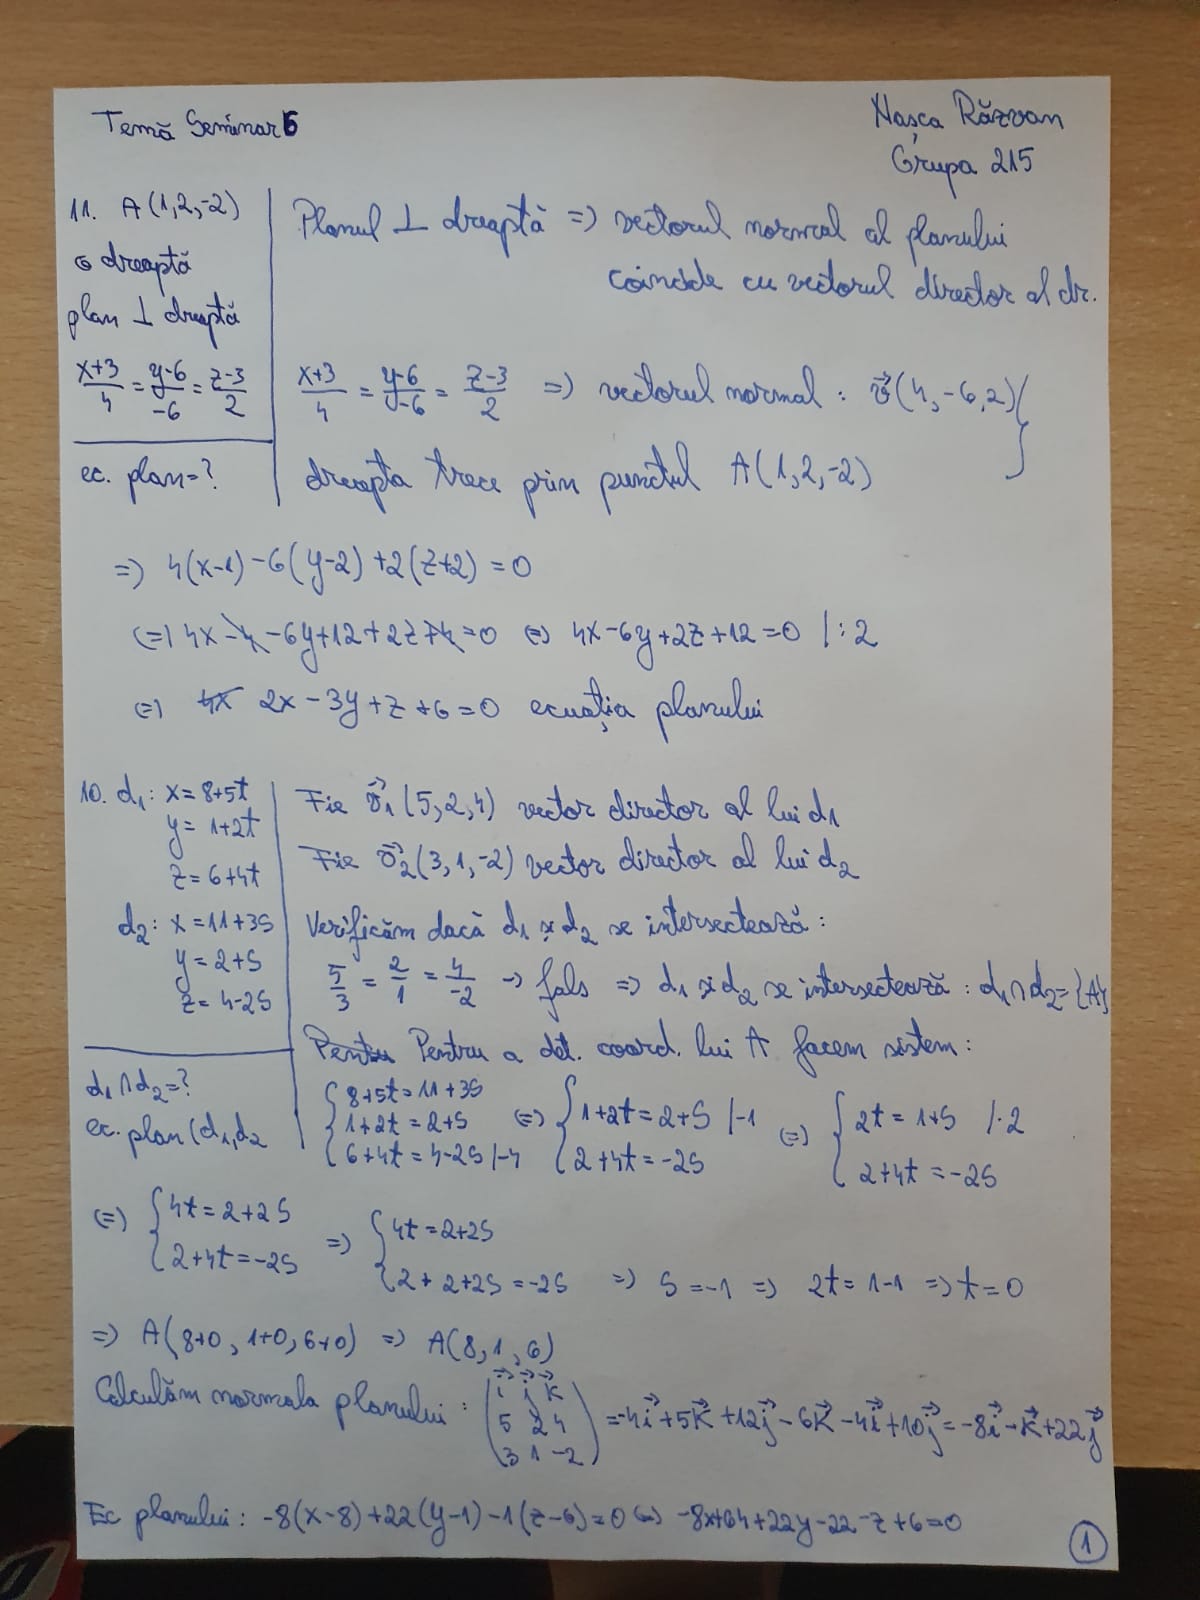 Temă Seminar 6
Hașca Răzvan
Grupa 215
11. A(1,2,-2)
o dreaptă
plan ⊥ dreaptă
x+3/4 = y-6/-6 = z-3/2
ec. plan=?
Planul ⊥ dreaptă => vectorul normal al planului
coincide cu vectorul director al dr.
x+3/4 = y-6/-6 = z-3/2 => vectorul normal : v⃗(4,-6,2)
dreapta trece prin punctul A(1,2,-2)
=> 4(x-1)-6(y-2)+2(z+2)=0
(=) 4x-4-6y+12+2z+4=0 (=) 4x-6y+2z+12=0 |:2
(=) 4x 2x-3y+z+6=0 ecuația planului
10. d1: x=8+5t
y=1+2t
z=6+4t
d2: x=11+3s
y=2+s
z=4-2s
d1∩d2=?
ec. plan (d1,d2
Fie v⃗1(5,2,4) vector director al lui d1
Fie v⃗2(3,1,-2) vector director al lui d2
Verificăm dacă d1 și d2 se intersectează:
5/3 = 2/1 = 4/-2 → fals => d1 și d2 se intersectează : d1∩d2={A}
Pentru Pentru a det. coord. lui A facem sistem:
{8+5t=11+3s
1+2t=2+s
6+4t=4-2s |-4
(=) {1+2t=2+s |-1
2+4t=-2s
(=) {2t=1+s |·2
2+4t=-2s
(=) {4t=2+2s
2+4t=-2s
=> {4t=2+2s
2+2+2s=-2s => s=-1 => 2t=1-1 => t=0
=> A(8+0,1+0,6+0) => A(8,1,6)
Calculăm normala planului : (i⃗ j⃗ k⃗
5 2 4
3 1 -2) =-4i⃗+5k⃗+12j⃗-6k⃗-4i⃗+10j⃗=-8i⃗-k⃗+22j⃗
Ec planului: -8(x-8)+22(y-1)-1(z-6)=0 (=) -8x+64+22y-22-z+6=0
1